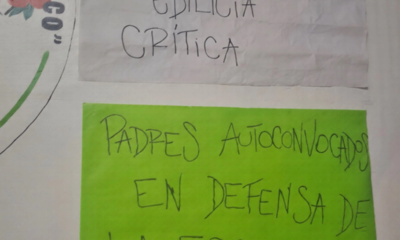 CO"
EDILICIA
CRÍTICA
PADRES AUTOCONVOCADOS
EN DEFENSA DE
LA